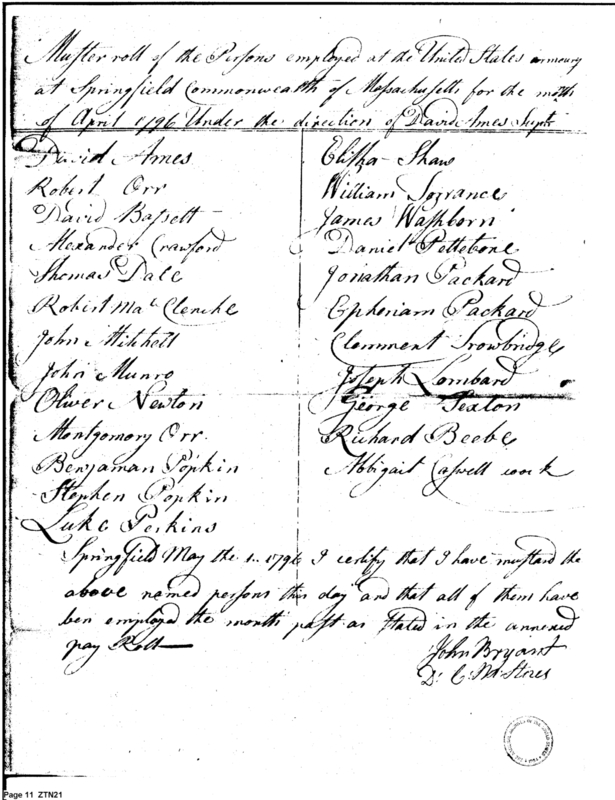 Muster roll of the Persons employed at the United States armoury
at Springfield Commonwealth of Massachusetts for the month
of April 1796 Under the direction of David Ames Supt
David Ames
Robert Orr
David Bassett
Alexander Crawford
Thomas Dale
Robert Mac Clenche
John Mitchell
John Munro
Oliver Newton
Montgomory Orr
Benjaman Popkin
Stephen Popkin
Luke Perkins
Elisha Shaw
William Sozrance
James Washborn
Daniel Pettebone
Jonathan Packard
Ephoriam Packard
Clemment Trowbridge
Joseph Lombard
George Sexton
Richard Beebe
Abbigail Caswell cook
Springfield May the 1.. 1796 I certify that I have mustard the
above named persons this day and that all of them have
ben employed the month past as stated in the annexed
pay Roll
John Bryant
D. C. Md Stores
Page 11 ZTN21